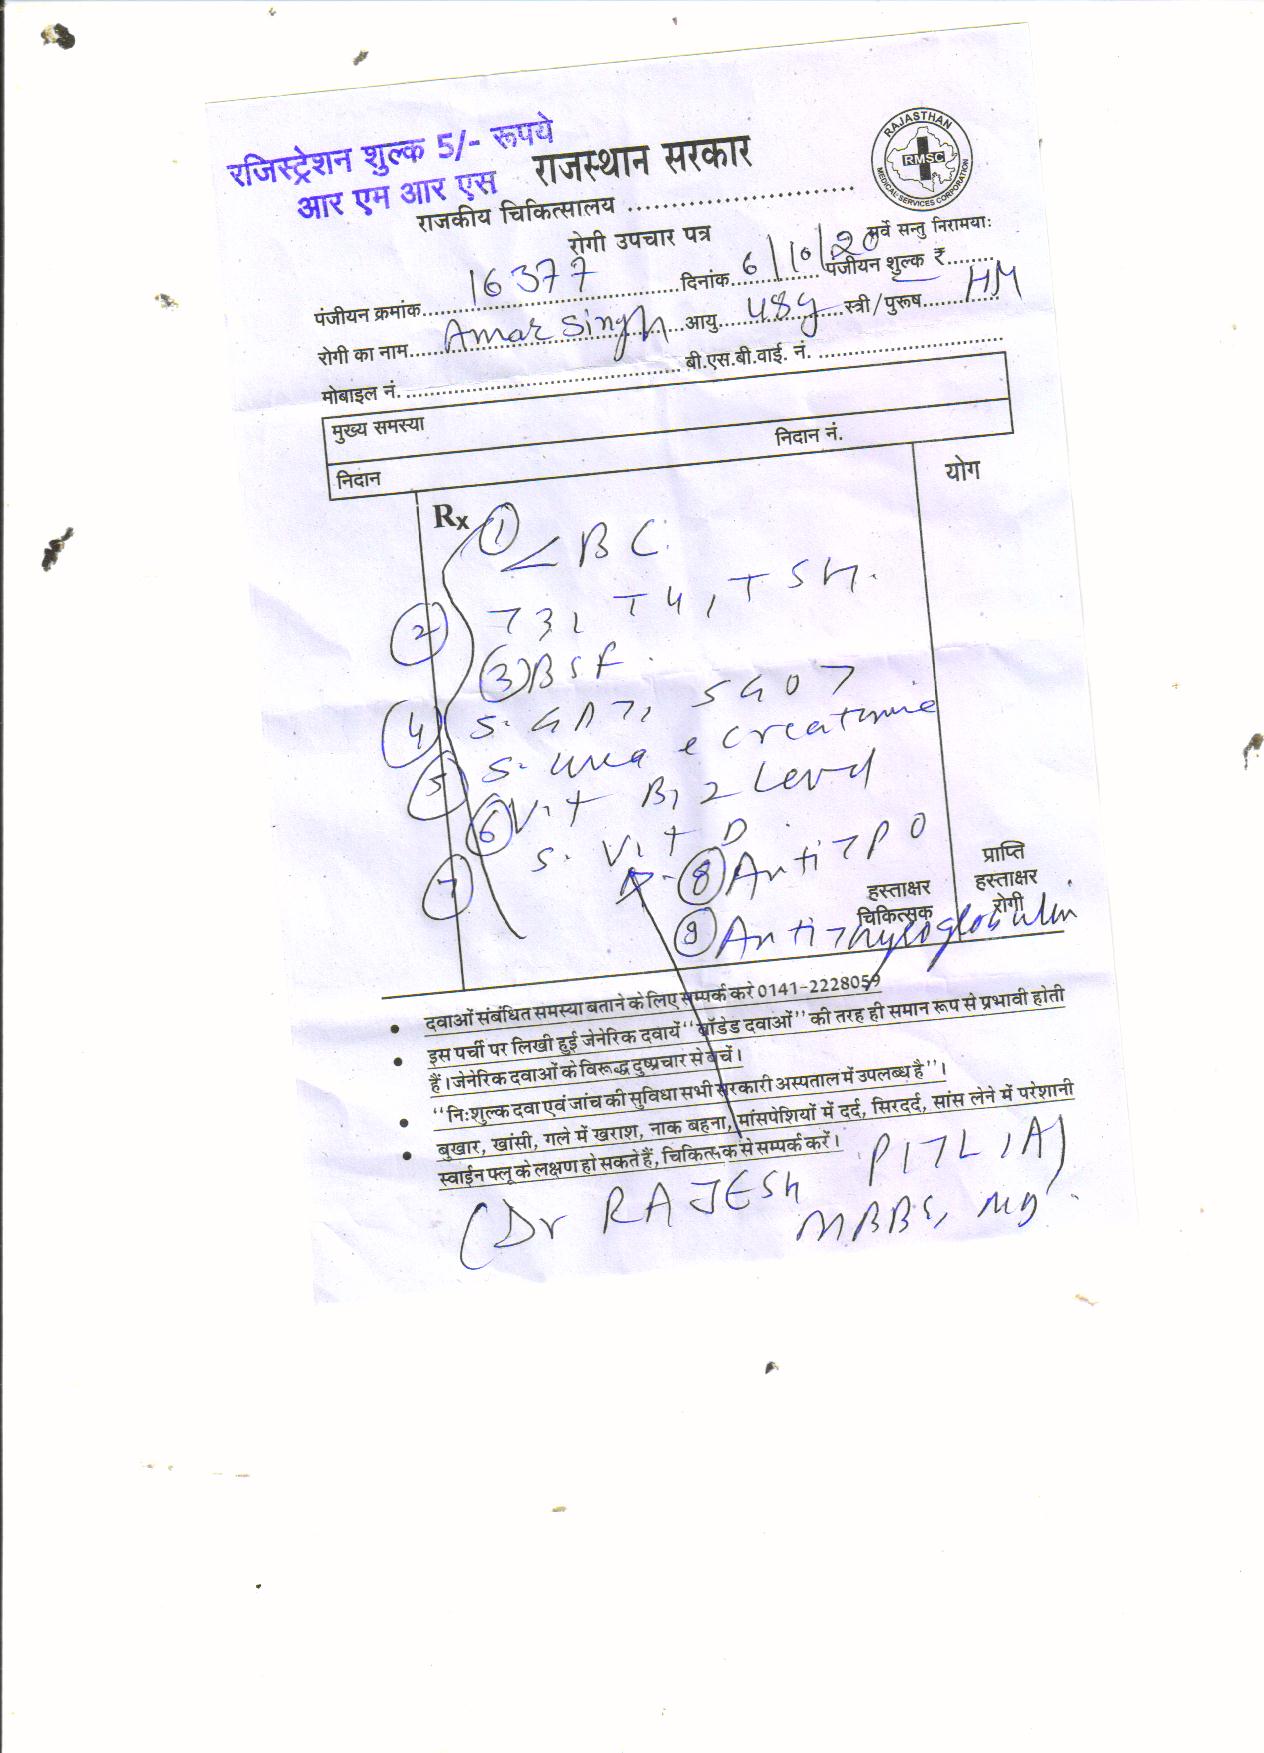 रजिस्ट्रेशन शुल्क 5/- रूपये
आर एम आर एस
राजस्थान सरकार
RAJASTHAN
RMSC
MEDICAL SERVICES CORPORATION
राजकीय चिकित्सालय
रोगी उपचार पत्र
सर्वे सन्तु निरामयाः
पंजीयन क्रमांक 16377 दिनांक 6/10/20 पंजीयन शुल्क ₹
रोगी का नाम Amar Singh आयु 48y स्त्री/पुरूष HM
मोबाइल नं. बी.एस.बी.वाई. नं.
मुख्य समस्या
निदान निदान नं.
Rx योग
1 CBC
2 T3, T4, TSH.
3 BSF.
4 S. GPT, SGOT
5 S. urea e creatinine
6 Vit B12 Level
7 S. Vit D
8 Anti TPO
9 Anti Thyroglobulin
हस्ताक्षर चिकित्सक
प्राप्ति हस्ताक्षर रोगी
• दवाओं संबंधित समस्या बताने के लिए सम्पर्क करे 0141-2228059
• इस पर्ची पर लिखी हुई जेनेरिक दवायें "ब्रॉडेड दवाओं" की तरह ही समान रूप से प्रभावी होती
हैं। जेनेरिक दवाओं के विरूद्ध दुष्प्रचार से बचें।
• "निःशुल्क दवा एवं जांच की सुविधा सभी सरकारी अस्पताल में उपलब्ध है"।
• बुखार, खांसी, गले में खराश, नाक बहना, मांसपेशियों में दर्द, सिरदर्द, सांस लेने में परेशानी
स्वाईन फ्लू के लक्षण हो सकते हैं, चिकित्सक से सम्पर्क करें।
(Dr RAJESH PITLIA)
MBBS, MD